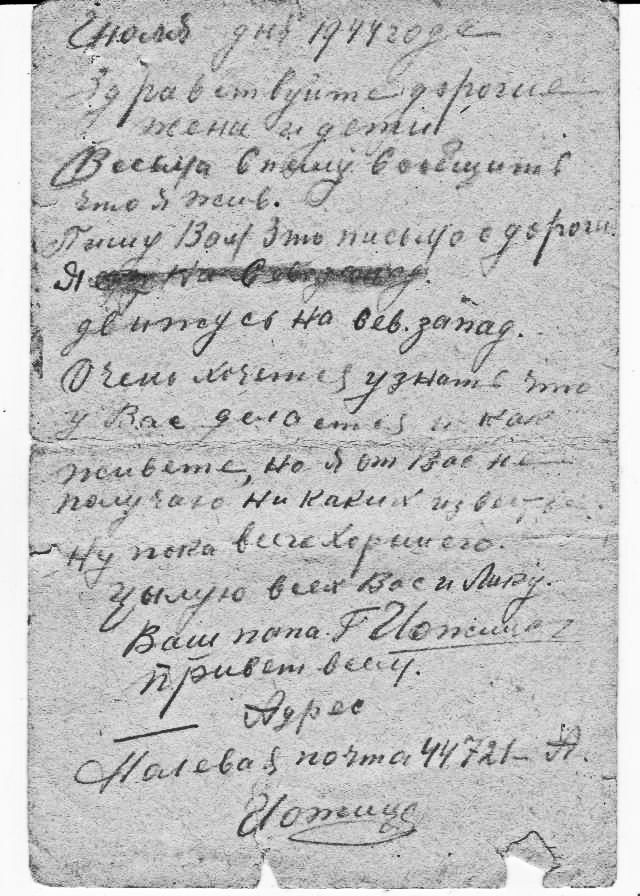 Июля дня 1944 года
Здравствуйте дорогие
жена и дети
Весьма спешу сообщить
что я жив.
Пишу Вам это письмо с дороги
Я на
движусь на сев. запад.
Очень хочется узнать что
у Вас делается и как
живете, но я от Вас не
получаю ни каких
Ну пока всего хорошего.
Цылую всех Вас и
Ваш папа. Г
привет всем.
Адрес
Полевая почта 44721 - Я.